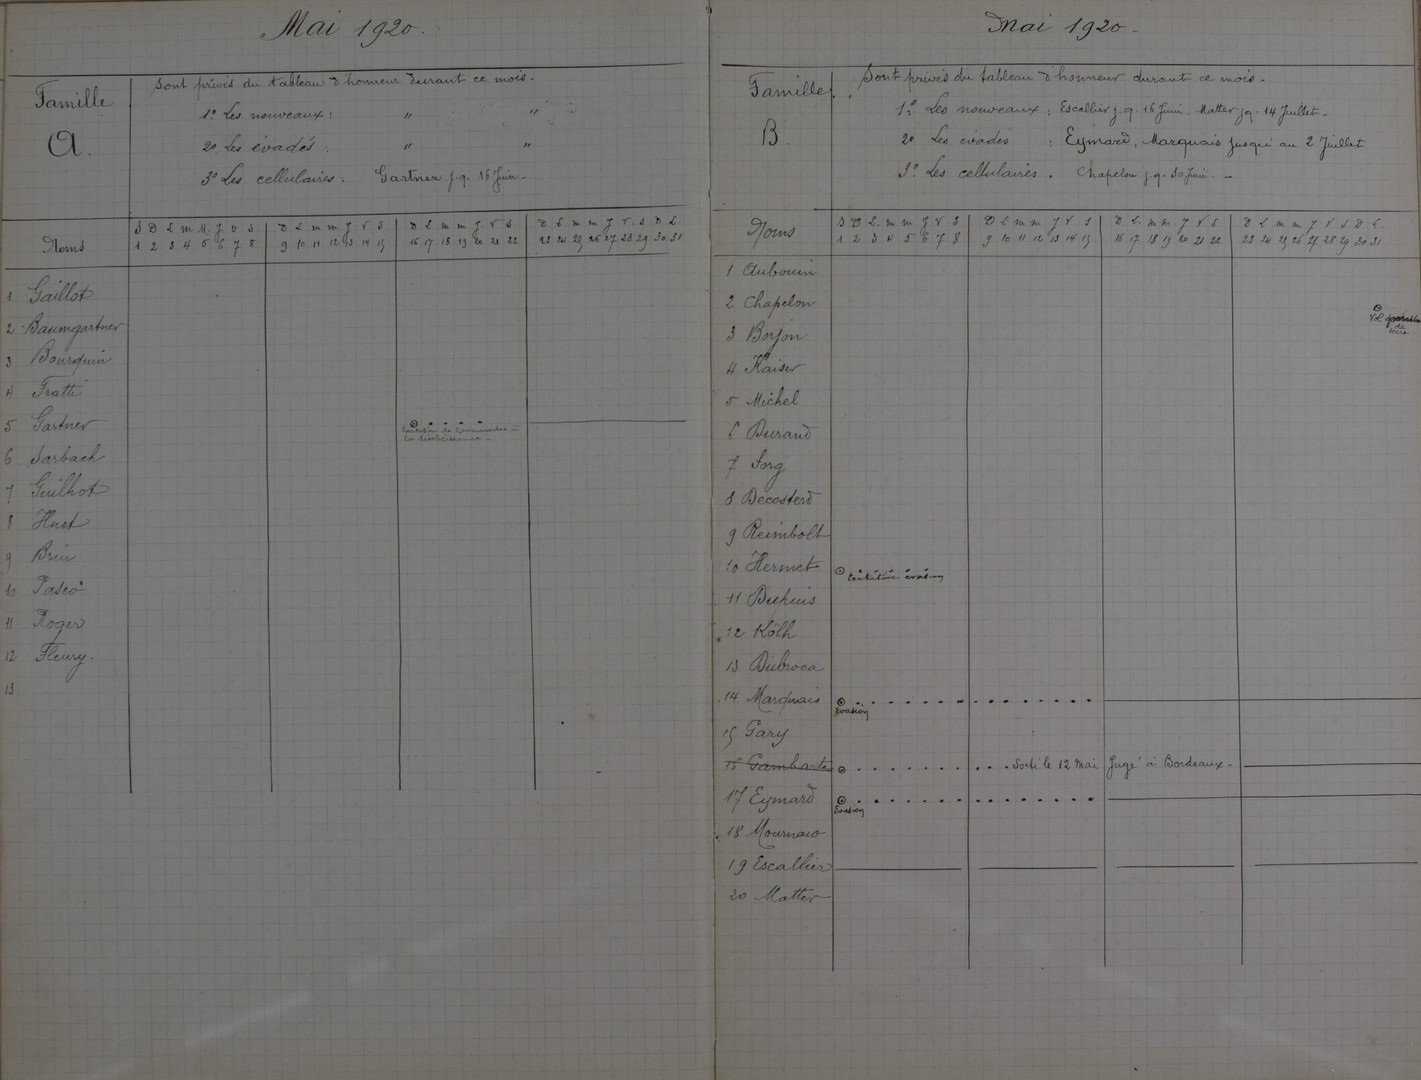 Mai 1920.
Famille
A.
Sont privés du tableau d'honneur durant ce mois -
1º Les nouveaux : " "
2º Les évadés : " "
3º Les cellulaires : Gartner j.q. 16 Juin -
Noms
S D L M M J V S D L M M J V S D L M M J V S D L M M J V S D L
1 2 3 4 5 6 7 8 9 10 11 12 13 14 15 16 17 18 19 20 21 22 23 24 25 26 27 28 29 30 31
1 Gaillot
2 Baumgartner
3 Bourquin
4 Fratti
5 Gartner
tentative de
La désobéissance -
6 Sarbach
7 Guilhot
8 Huet
9 Brin
10 Pasco
11 Roger
12 Fleury.
13
Mai 1920 -
Famille
B.
Sont privés du tableau d'honneur durant ce mois -
1º Les nouveaux : Escallier j.q. 16 Juin. Matter jq. 14 Juillet -
2º Les évadés : Eymard, Marquais jusqu'au 2 Juillet
3º Les cellulaires . Chapelon j.q. 30 Juin. -
Noms
S D L M M J V S D L M M J V S D L M M J V S D L M M J V S D L
1 2 3 4 5 6 7 8 9 10 11 12 13 14 15 16 17 18 19 20 21 22 23 24 25 26 27 28 29 30 31
1 Aubouin
2 Chapelon
Vol
de
3 Borjon
4 Kaiser
5 Michel
6 Durand
7 Sorg
8 Decosterd
9 Reimbolt
10 Hermet tentative évasion
11 Dupuis
12 Kölh
13 Dubroca
14 Marquais
Evasion
15 Gary
16 Gambarte Sorti le 12 Mai Jugé à Bordeaux -
17 Eymard
Evasion
18 Mournaco
19 Escallier
20 Matter